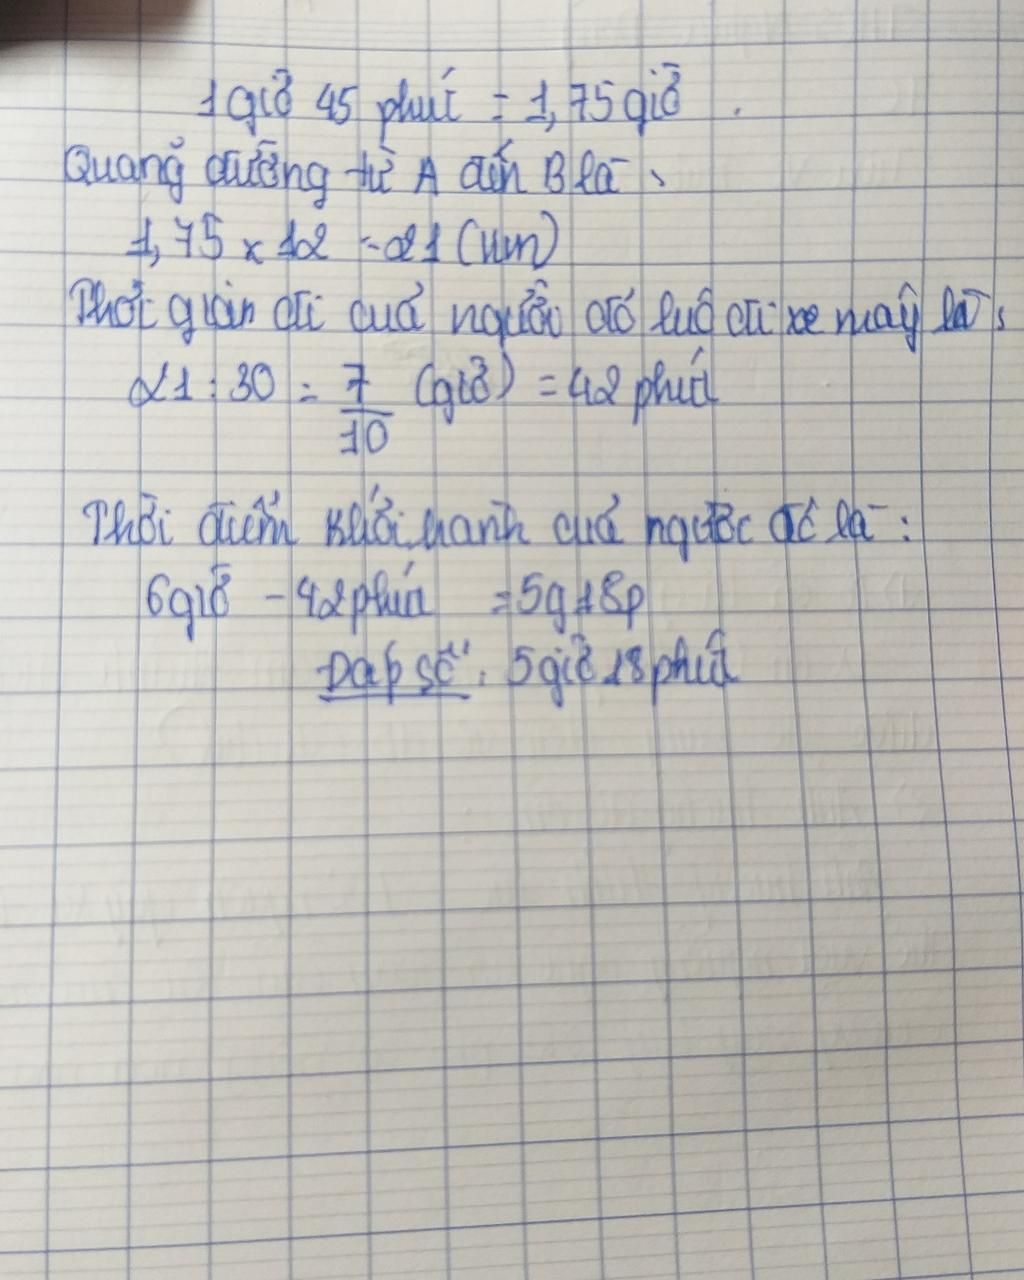 1 giờ 45 phút = 1,75 giờ.
Quãng đường từ A đến B là:
1,75 x 12 = 21 (km)
Thời gian đi của người đó lúc đi xe máy là:
21 : 30 = 7/10 (giờ) = 42 phút
Thời điểm khởi hành của người đó là:
6 giờ - 42 phút = 5g18p
Đáp số: 5 giờ 18 phút